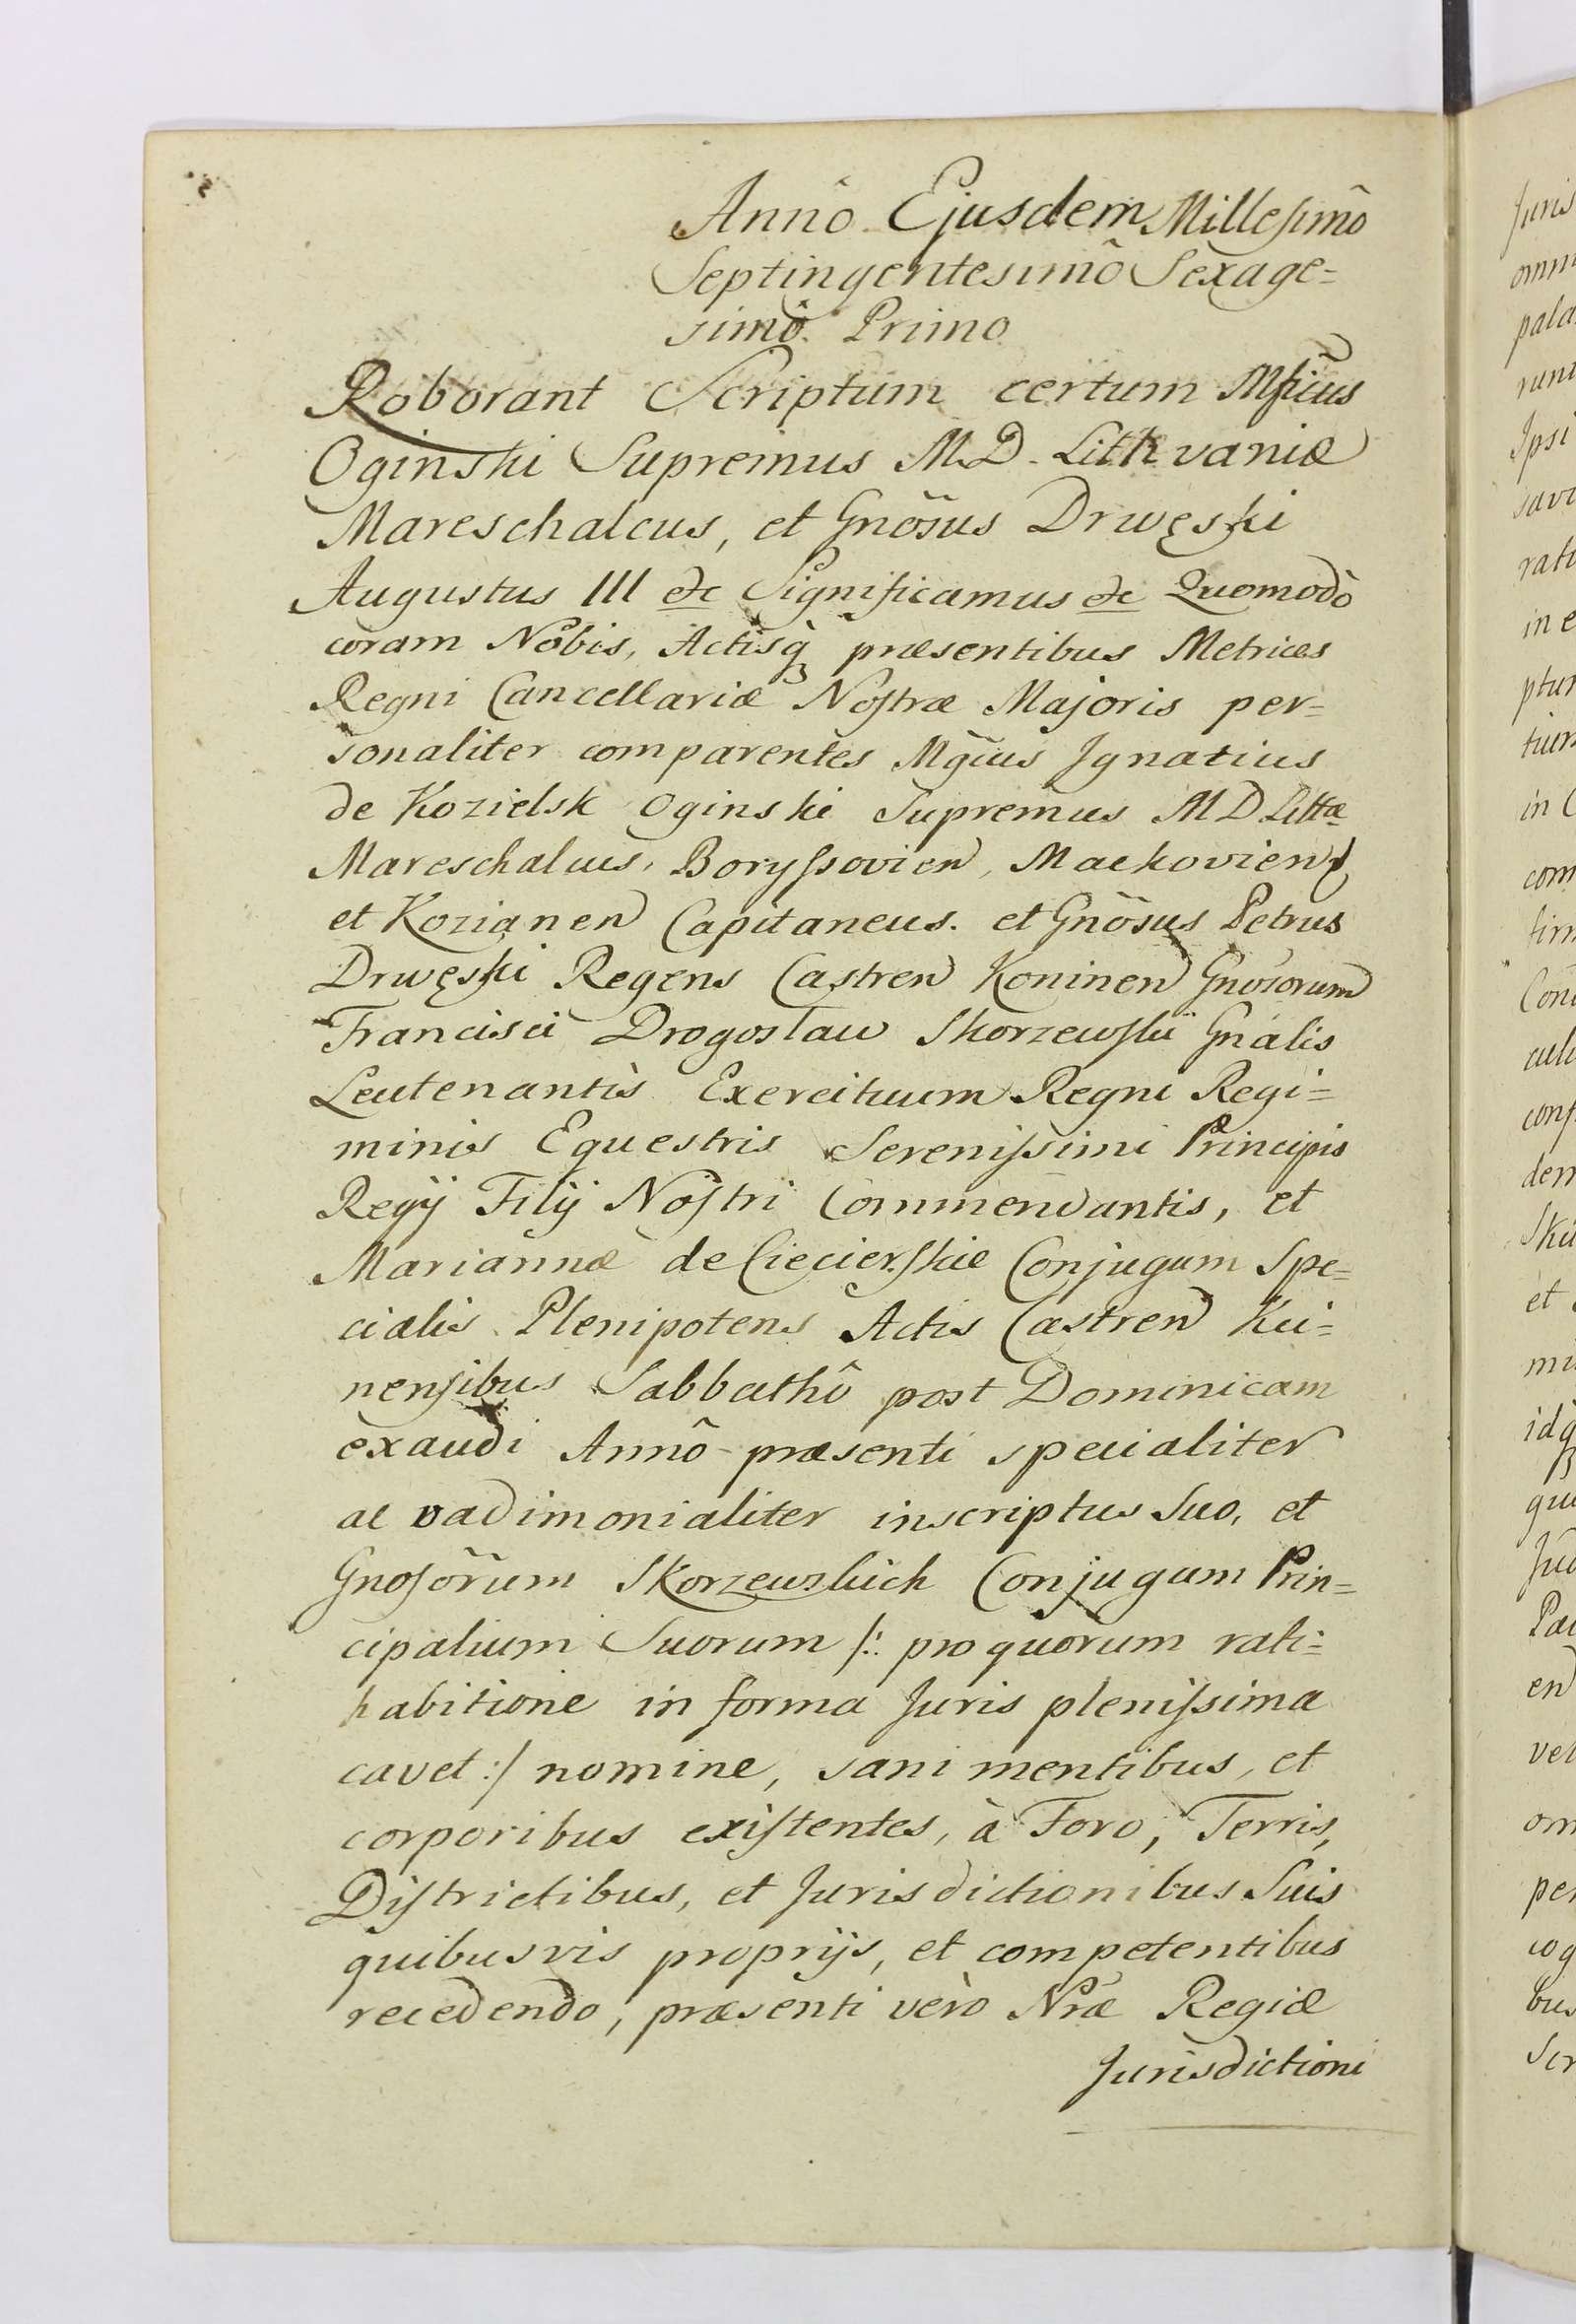 Annô Ejusdem Millesimô
Septingentesimô Sexage=
simô Primo
Roborant Scriptum certum Mficus
Oginski Supremus M.D. Lithvaniæ
Mareschalcus, et Gnõsus Drwęski
Augustus III etc Significamus etc Quomodò
coram Nobis, Actisq̀ præsentibus Metrices
Regni Cancellariæ Nostræ Majoris per=
sonaliter comparentes Mgcus Ignatius
de Kozielsk Oginski Supremus M D Littæ
Mareschalcus, Boryssovien, Mackovien,
et Kozianen Capitaneus. et Gnõsus Petrus
Drwęski Regens Castren Koninen Gnosorum
Francisci Drogosław Skorzewski Gnãlis
Leutenantis Exercituum Regni Regi=
minis Equestris Serenissimi Principis
Regij Filij Nostri Commendantis, et
Mariannæ de Ciecierskie Conjugum Spe=
cialis Plenipotens Actis Castren Kci=
nensibus Sabbathô post Dominicam
exaudi Annô præsenti specialiter
ac vadimonialiter inscriptus Suo, et
Gnosõrum Skorzewskich Conjugum Prin=
cipalium Suorum /: pro quorum rati=
habitione in forma Juris plenissima
cavet :/ nomine, sani mentibus, et
corporibus existentes, à Foro, Terris,
Districtibus, et Jurisdictionibus Suis
quibusvis proprijs, et competentibus
recedendo, præsenti verò Nræ Regiæ
Jurisdictioni